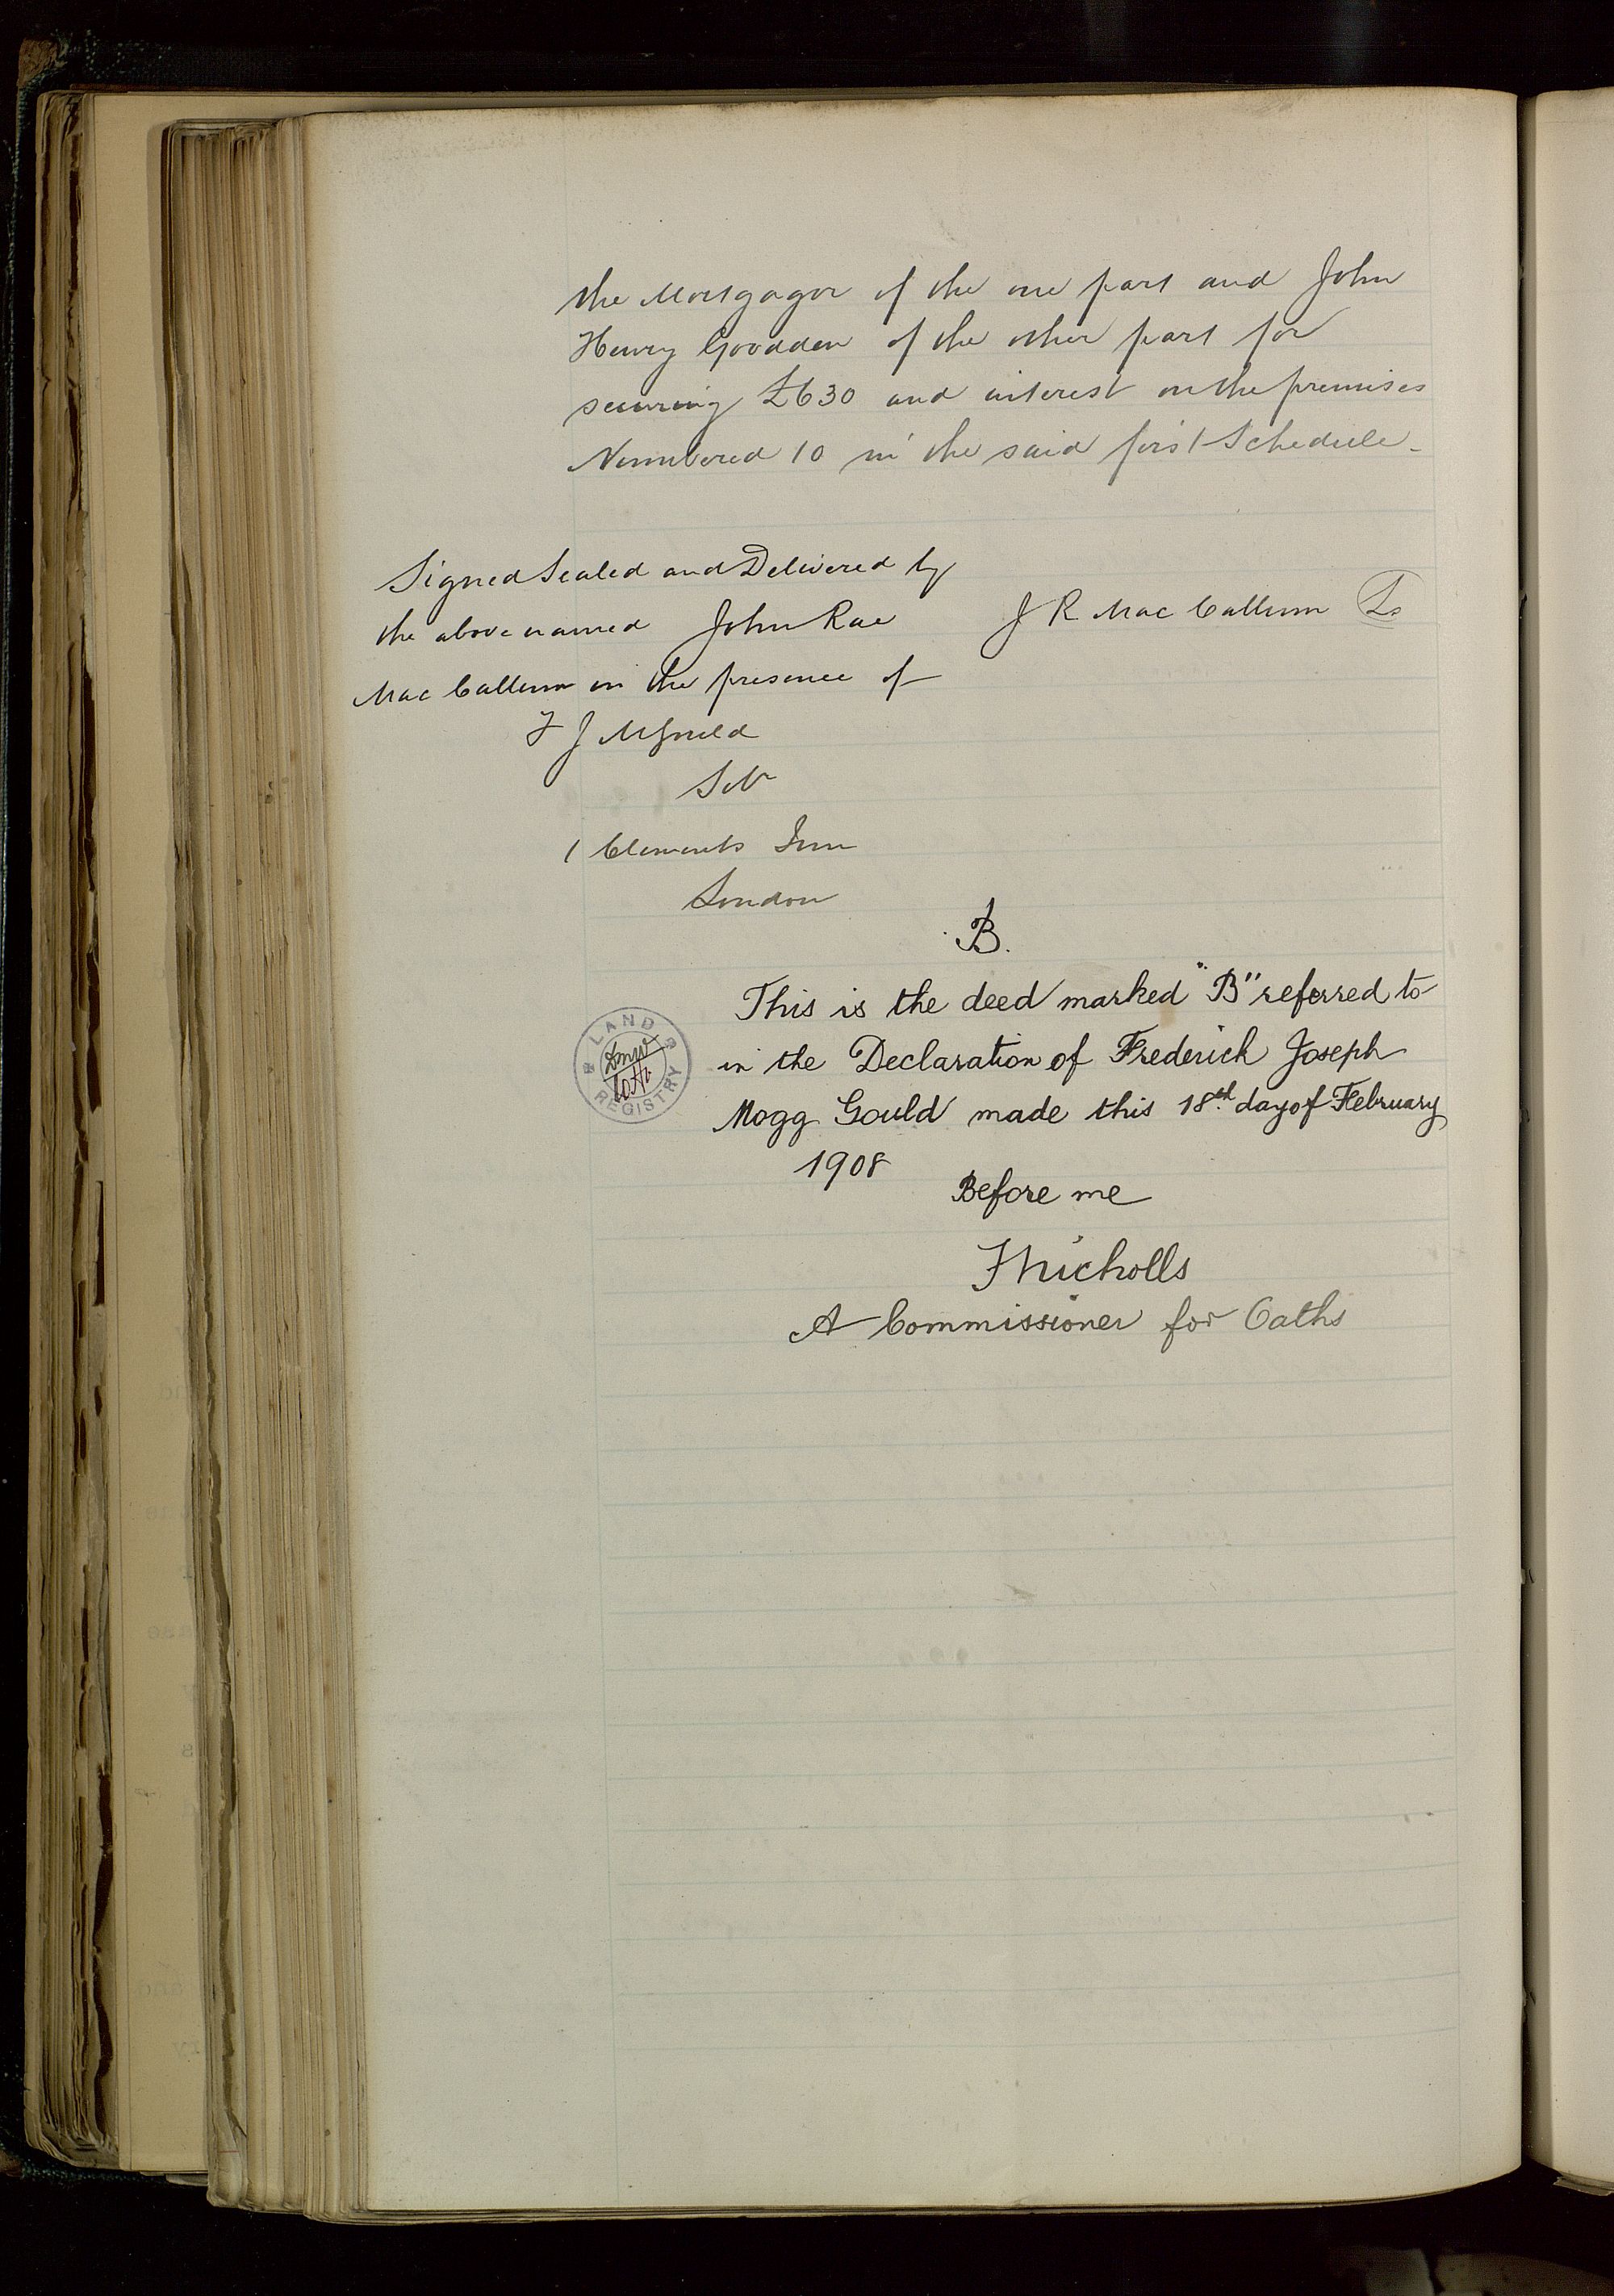 the Mortgagor of the one part and John
Henry Goodden of the other part for
securing £630 and interest on the premises
Numbered 10 in the said first Schedule
Signed Sealed and Delivered by
the above named John Rae
Mac Callum in the presence of
J R Mac Callum Ls
F J M Gould
Solr
1 Clements Inn
London
B.
This is the deed marked "B" referred to
in the Declaration of Frederick Joseph
Mogg Gould made this 18th day of February
1908
Before me
F Nicholls
A Commissioner for Oaths
LAND
REGISTRY